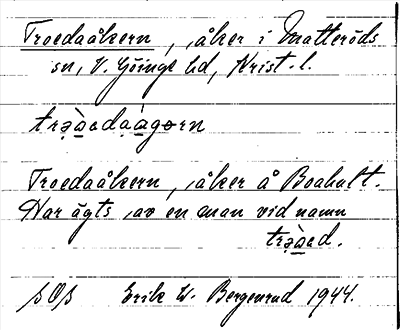 Troedaåkern, åker i Matteröds
sn, V. Göinge hd, Krist. l.
trạ̀edaàgơrn
Troedaåkern, åker å Boahult.
Har ägts av en man vid namn
SOS Erik W. Bergenrud 1944.